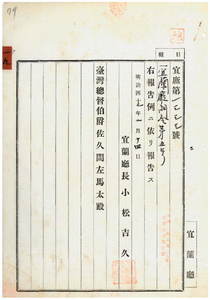 宜廳第一七七七號
一宜蘭廳訓令第五号
右報告例ニ依リ報告ス
明治四十一年一月十四日
宜蘭廳長小松吉久
臺灣總督伯爵佐久間左馬太殿
宜蘭廳